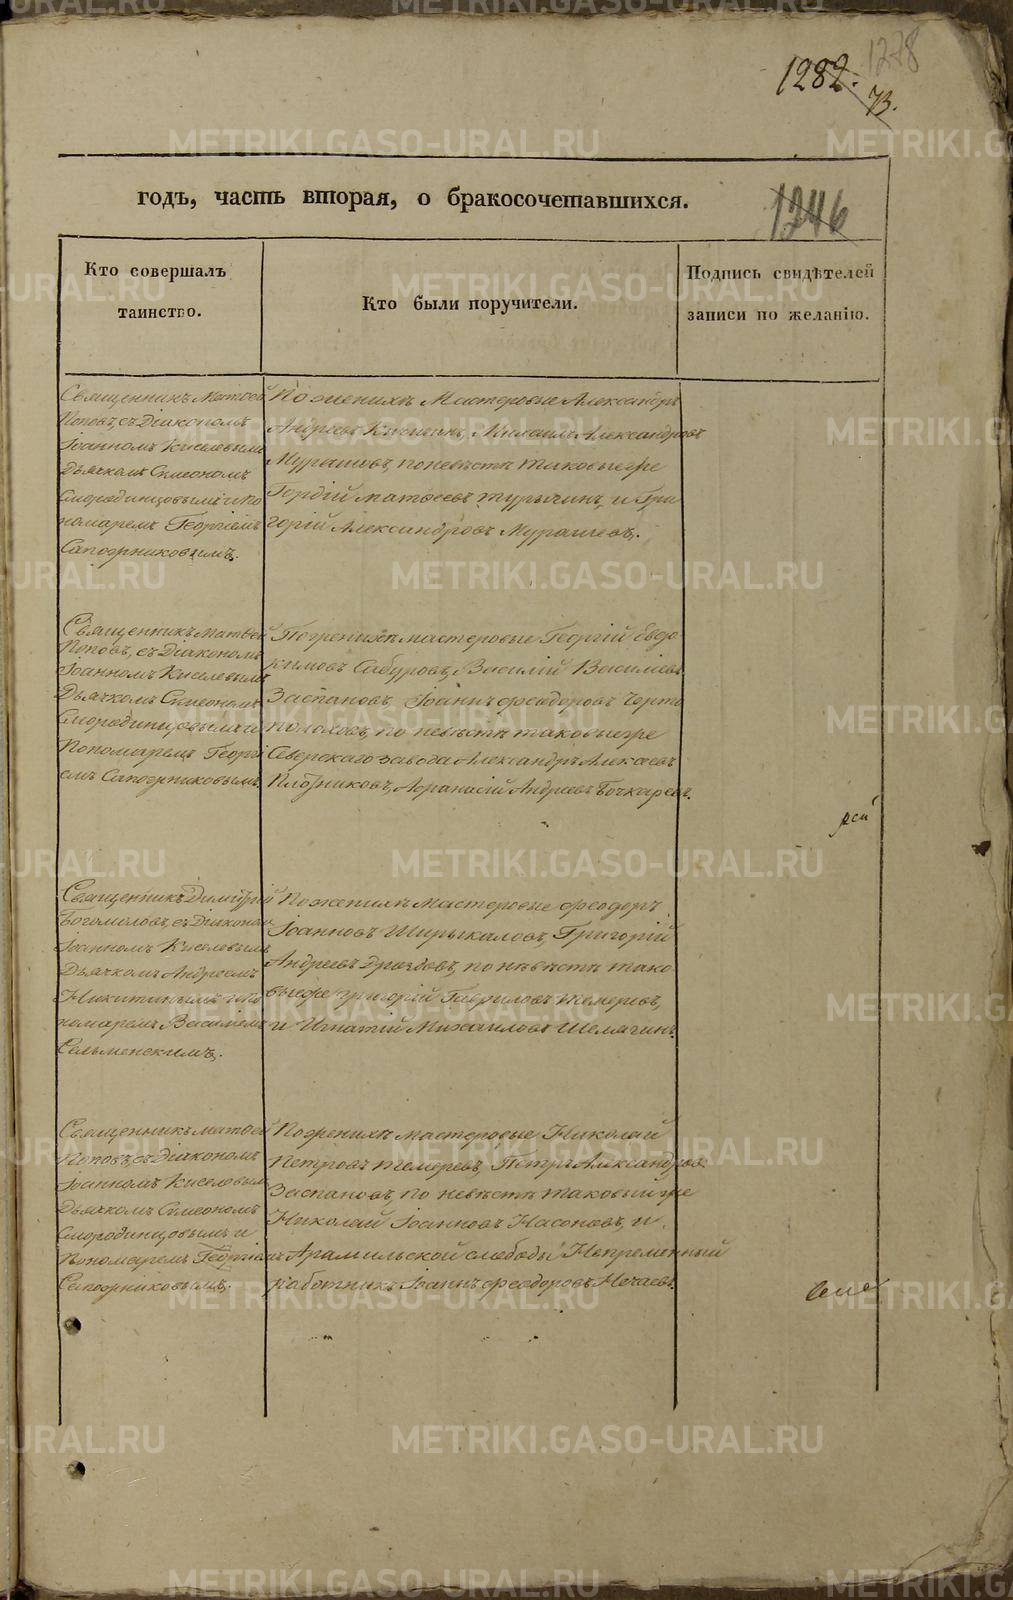 1278
1282.
73.
годъ, часть вторая, о бракосочетавшихся.
1246
Кто совершалъ
таинство.
Кто были поручители.
Подпись свидѣтелей
записи по желанію.
Священникъ Матѳей
Поповъ, съ Діакономъ
Іоанномъ Киселевымъ
Дьячкомъ Симеономъ
Смородинцовымъ и По
номаремъ Георгіемъ
Сапожниковымъ.
По женихѣ Мастеровые Александръ
Андреевъ Михаилъ Александровъ
Мурашовъ, по невѣстѣ таковыеже
Гордій Матѳеевъ Турыгинъ, и Гри
горій Александровъ Мурашевъ.
Священникъ Матѳей
Поповъ, съ Діакономъ
Іоанномъ Киселевымъ
Дьячкомъ Симеономъ
Смородинцовымъ и
Пономаремъ Георгі
емъ Сапожниковымъ.
По женихѣ мастеровые Георгій Евдо
кимовъ Сабуровъ, Василій Васильевъ
Заспановъ, Іоаннъ Феодоровъ Черто
полоховъ, по невѣстѣ таковыеже
Северскаго завода Александръ Алекѣевъ
Плотниковъ, Афанасій Андреевъ Бочкаревъ.
Священникъ Димитрій
Богомоловъ, съ Діаконом
Іоанномъ Киселевымъ
Дьячкомъ Андреемъ
Никитинымъ и По
номаремъ Василіемъ
Сельменскимъ.
По женихѣ мастеровые Феодоръ
Іоанновъ Ширыкаловъ, Григорій
Андреевъ Дроздовъ, по невѣстѣ тако
выеже Григорій Гавриловъ Темеревъ,
и Игнатій Михаиловъ Шемягинъ.
Священникъ Матѳей
Поповъ, съ Діакономъ
Іоанномъ Киселевым
Дьячкомъ Симеономъ
Смородинцовымъ и
Пономаремъ Георгіемъ
Сапожниковымъ.
По женихѣ мастеровые Николай
Петровъ Темеревъ, Петръ Александровъ
Заспановъ, по невѣстѣ таковыйже
Николай Іоанновъ Насоновъ, и
Арамильской слободы Непременный
работникъ Іоаннъ Феодоровъ Нечаевъ.